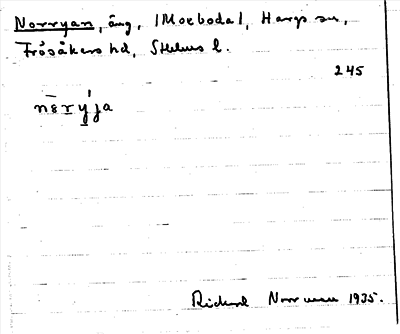 Norryan, äng, /Morbodal, Hargs sn,
Frösåkers hd, Sthlms l.
245
Rickard Norrman 1935.